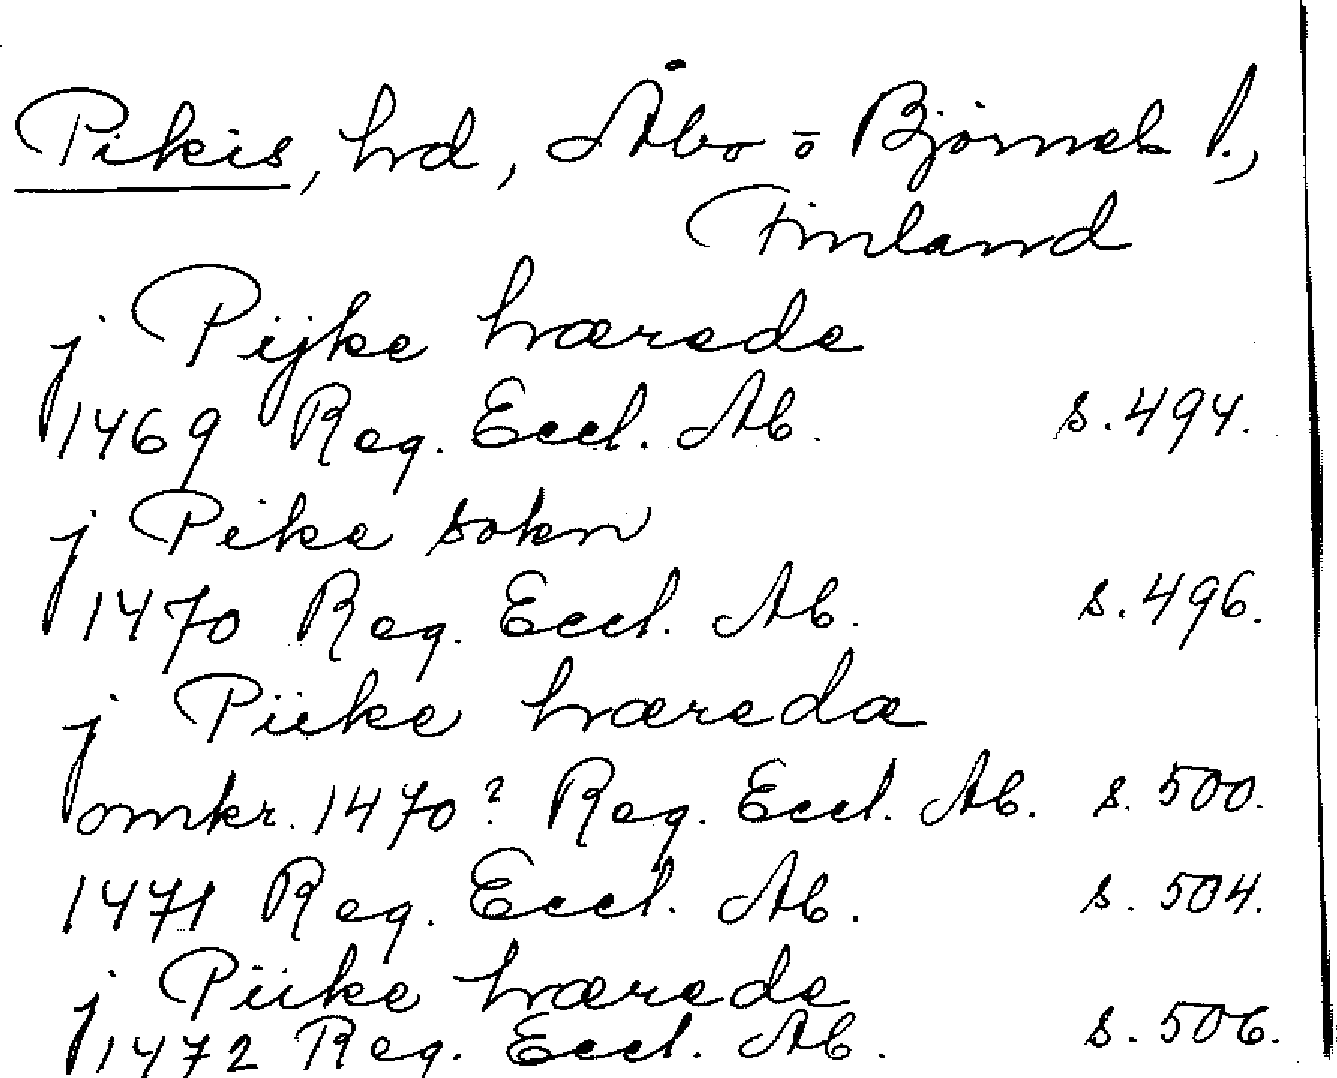 Pikis, hd, Åbo o Björneb l.,
Finland
j Pijke hærede
1469 Reg. Eccl. Ab. s. 494.
j Pike sokn
1470 Reg. Eccl. Ab. s. 496.
j Piike hæredæ
omkr. 1470? Reg. Eccl. Ab. s. 500.
1471 Reg. Eccl. Ab. s. 504.
j Piike hærede
1472 Reg. Eccl. Ab. s. 506.